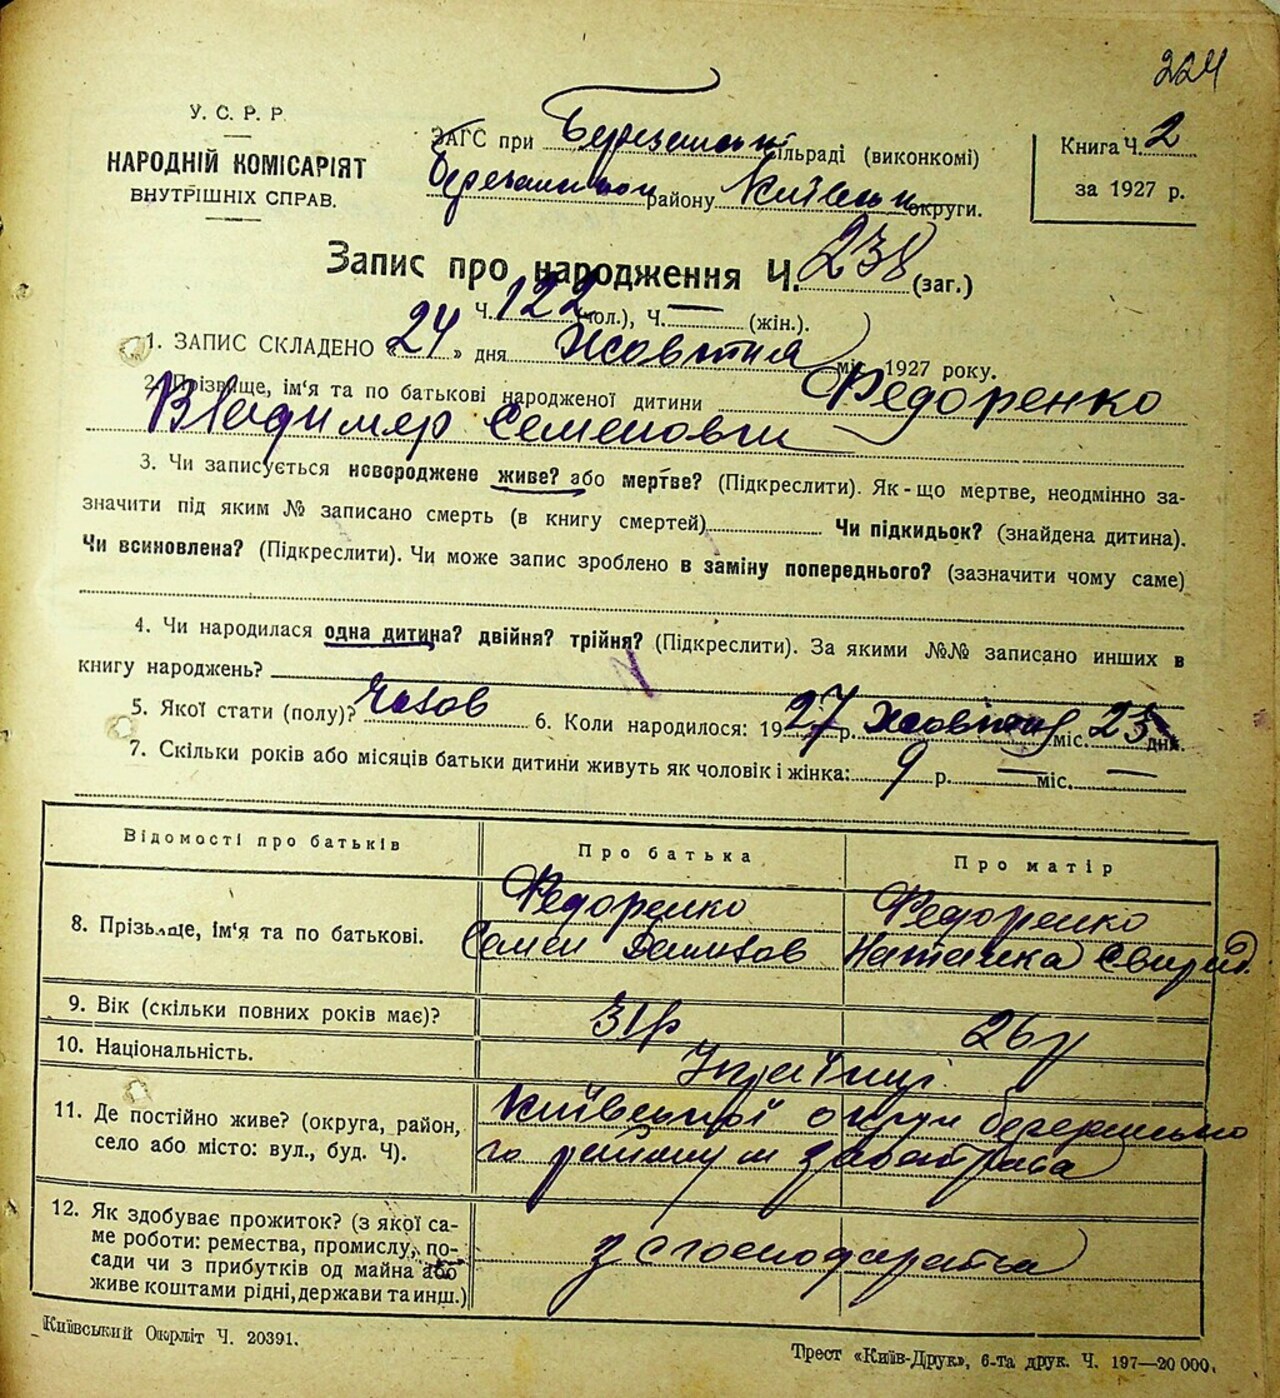 224
У. С. Р. Р.
НАРОДНІЙ КОМІСАРІЯТ
ВНУТРІШНІХ СПРАВ.
ЗАГС при Березанськ сільраді (виконкомі)
Березанськом району Київськ округи.
Книга Ч. 2
за 1927 р.
Запис про народження Ч. 238 (заг.)
Ч. 122 (чол.), Ч. — (жін.).
1. ЗАПИС СКЛАДЕНО « 24 » дня Жовтня міс. 1927 року.
2. Прізвище, ім'я та по батькові народженої дитини Федоренко
Владимер Семенович
3. Чи записується новороджене живе? або мертве? (Підкреслити). Як-що мертве, неодмінно за-
значити під яким № записано смерть (в книгу смертей) Чи підкидьок? (знайдена дитина).
Чи всиновлена? (Підкреслити). Чи може запис зроблено в заміну попереднього? (зазначити чому саме)
4. Чи народилася одна дитина? двійня? трійня? (Підкреслити). За якими №№ записано инших в
книгу народжень?
5. Якої стати (полу)? чолов 6. Коли народилося: 1927 р. жовтня міс. 23 дня.
7. Скільки років або місяців батьки дитини живуть як чоловік і жінка: 9 р. — міс. —
Відомості про батьків Про батька Про матір
8. Прізвище, ім'я та по батькові. Федоренко Федоренко
Семен Данилов Наталка Свирид.
9. Вік (скільки повних років має)? 31р 26р
10. Національність. Українці.
11. Де постійно живе? (округа, район, Київської округи березансько
село або місто: вул., буд. Ч). го району
12. Як здобуває прожиток? (з якої са-
ме роботи: ремества, промислу, по- з господарства
сади чи з прибутків од майна або
живе коштами рідні, держави та инш.)
Київський Окрліт Ч. 20391.
Трест «Київ-Друк», 6-та друк. Ч. 197—20 000.